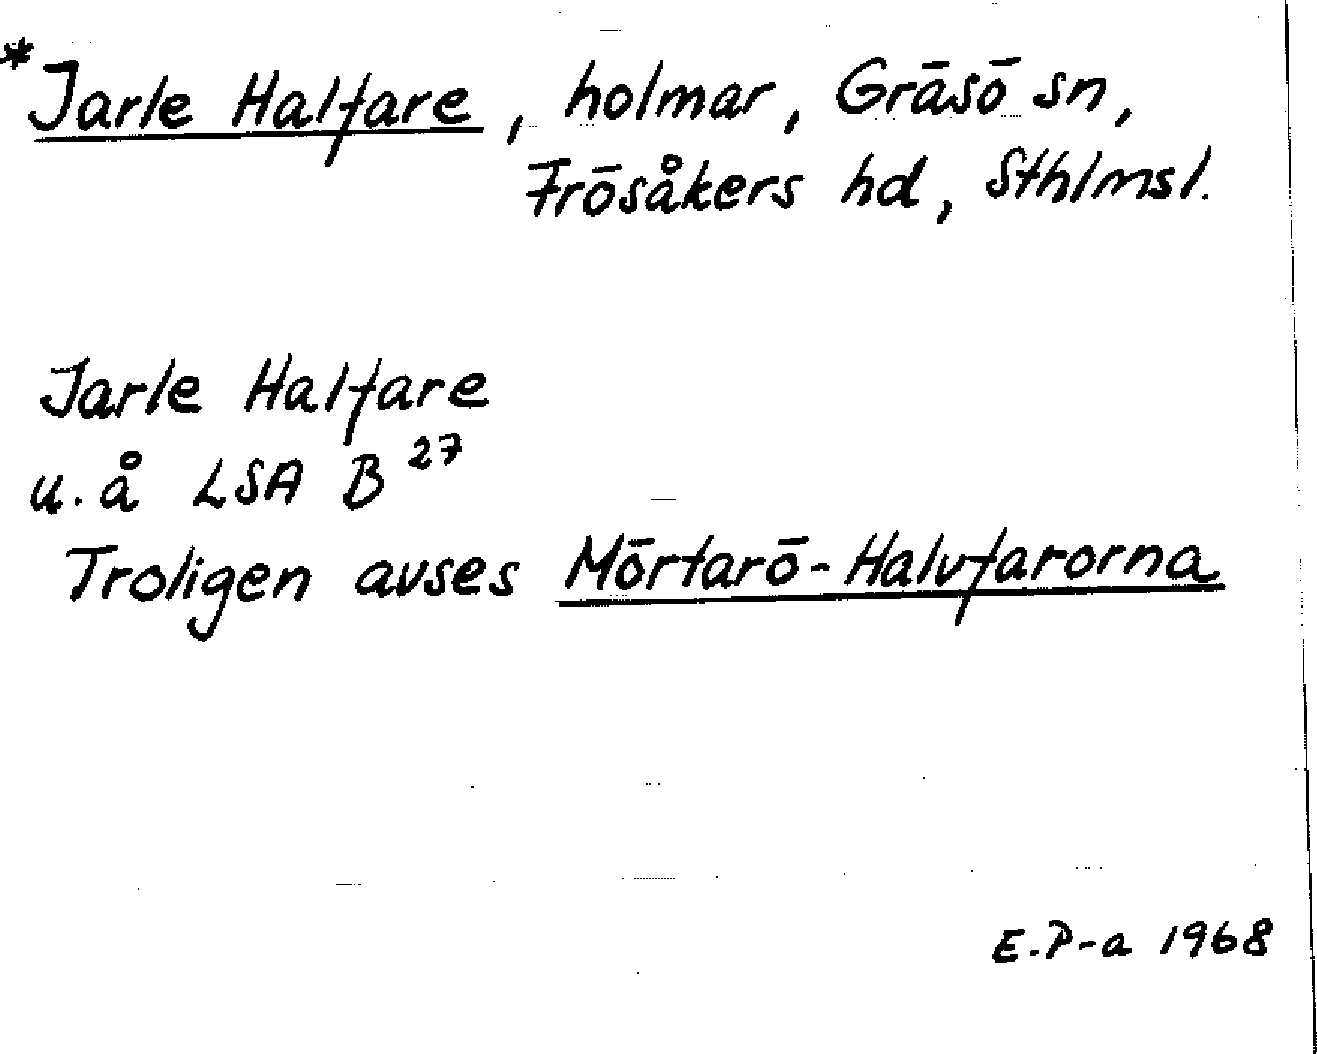 *Jarle Halfare, holmar, Gräsö sn,
Frösåkers hd, Sthlmsl.
Jarle Halfare
u.å LSA B 27
Troligen avses Mörtarö-Halvfarorna
E.P-a 1968